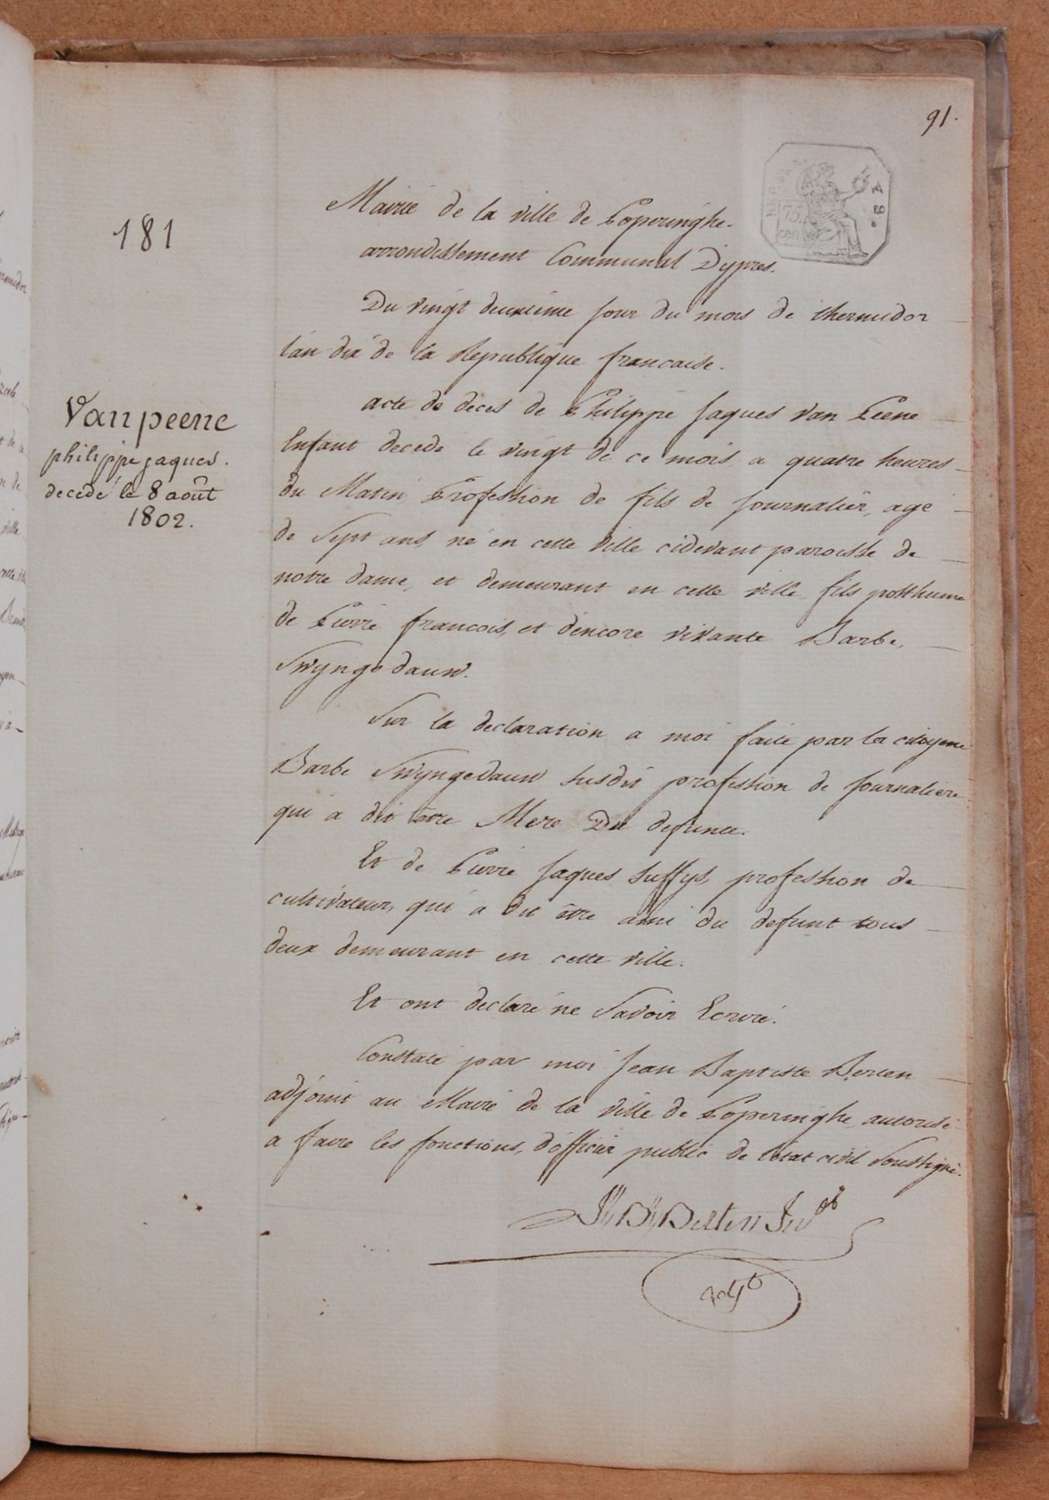 91.
181
Mairie de la ville de Poperinghe.
arrondissement Communal D'ypres.
Du vingt deuxieme jour du mois de thermidor
l'an dix de la Republique francaise.
Vanpeene
philippe jaques.
decedé le 8 août
1802.
acte de deces de Philippe Jaques Van Peene
Enfant decede le vingt de ce mois a quatre heures
du Matin Profession de fils de journalier, agé
de Sept ans né en cette ville cidevant paroisse de
notre dame, et demeurant en cette ville fils posthume
de Pierre francois, et d'encore vivante Barbe
Swyngedauw.
Sur la declaration a moi faite par la citoyene
Barbe Swyngedauw susdit profession de journaliere
qui a dit être Mere Du defunct.
Et de Pierre Jaques Suffys, profession de
cultivateur, qui a dit être ami du defunt tous
deux demeurant en cette ville.
Et ont declaré ne Savoir Ecrire.
Constaté par moi Jean Baptiste Berten
adjoint au Maire de la ville de Poperinghe autorisé
a faire les fonctions, d'officier public de l'etat civil Soussigné.